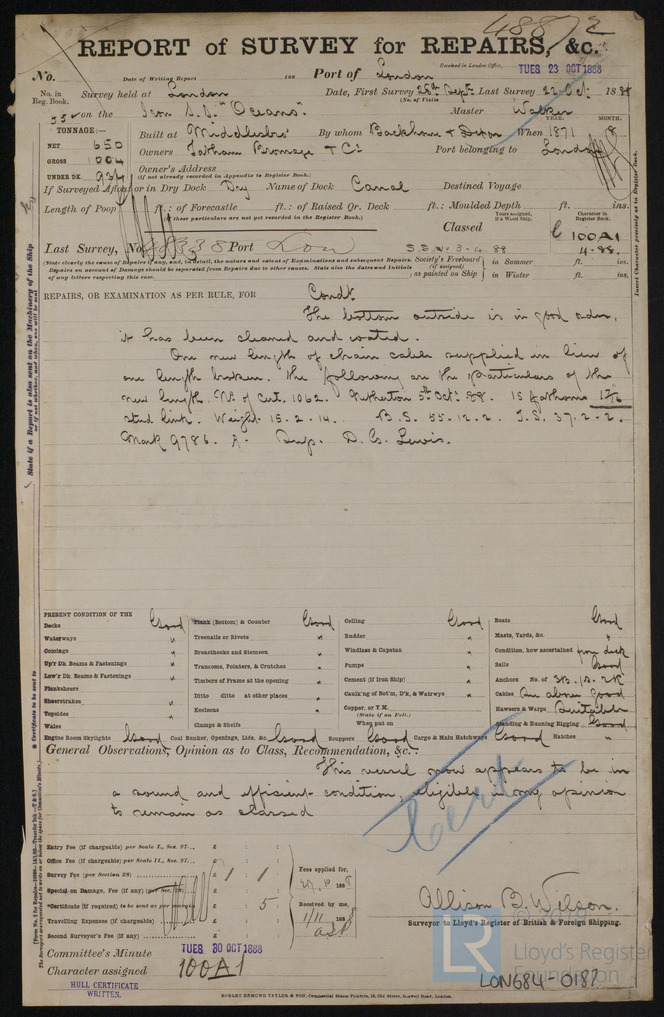 48872
REPORT of SURVEY for REPAIRS, &c.
Received in London Office, TUES 23 OCT 1888
No. Date of Writing Report 188 Port of London
No. in Reg. Book. Survey held at London Date, First Survey 26th Septr. Last Survey 22 Oct. 1888
(No. of Visits
550 on the Iron S.S. "Oceans". Master Walker
TONNAGE:— Built at Middlesbro' By whom Backhouse & Dixon When 1871 YEAR. MONTH. 8
NET 650
GROSS 1004
UNDER DK. 934
Owners Tatham Bromage & Co Port belonging to London
Owner's Address
(if not already recorded in Appendix to Register Book.)
If Surveyed Afloat or in Dry Dock Dry Name of Dock Canal Destined Voyage
Length of Poop ft.: of Forecastle ft.: of Raised Qr. Deck ft.: Moulded Depth ft. ins.
(these particulars are not yet recorded in the Register Book.)
Years assigned, if a Wood Ship. Character in Register Book.
Classed 100A1
4.88.
Last Survey, No. 48838 Port Lon S.S. No 3-4.88
(State clearly the cause of Repairs if any, and, in detail, the nature and extent of Examinations and subsequent Repairs.
Repairs on account of Damage should be separated from Repairs due to other causes. State also the dates and Initials
of any letters respecting this case.
Society's Freeboard (if assigned) as painted on Ship in Summer ft. ins.
in Winter ft. ins.
REPAIRS, OR EXAMINATION AS PER RULE, FOR Condt.
The bottom outside is in good order,
it has been cleaned and coated.
One new length of chain cable supplied in lieu of
one length broken. The following are the Particulars of the
new length. No of Cert. 1062. Netherton 5th Oct. 88. 15 fathoms
stud link. Weight 15.2.14. B.S. 55.12.2. T.S. 37.2.2.
Mark 9786. A. Sup. D. G. Lewis.
PRESENT CONDITION OF THE
Decks Good
Waterways "
Comings "
Up'r Dk. Beams & Fastenings "
Low'r Dk. Beams & Fastenings "
Planksheers
Sheerstrakes "
Topsides "
Wales
Engine Room Skylights Good Coal Bunker, Openings, Lids, &c. Good Scuppers Good Cargo & Main Hatchways Good Hatches "
Plank (Bottom) & Counter Good
Treenails or Rivets "
Breasthooks and Stemson "
Transoms, Pointers, & Crutches "
Timbers of Frame at the opening "
Ditto ditto at other places "
Keelsons "
Clamps & Shelfs
Ceiling Good
Rudder "
Windlass & Capstan "
Pumps "
Cement (if Iron Ship) "
Caulk'ng of Bot'm, D'k, & Watrwys "
Copper, or Y.M.
(State if on Felt.)
When put on
Boats Good
Masts, Yards, &c. "
Condition, how ascertained from deck
Sails Good
Anchors No. of 3B. 1S. 2K
Cables One above Good
Hawsers & Warps Suitable
Standing & Running Rigging Good
General Observations, Opinion as to Class, Recommendation, &c.:—
This vessel now appears to be in
a sound and efficient condition, eligible in my opinion
to remain as classed
Cert
Entry Fee (if chargeable) per Scale I., Sec. 27... £
Office Fee (if chargeable) per Scale II., Sec. 27... £
Survey Fee (per Section 28) £ 1 : 1
Special on Damage, Fee (if any) (per Sec. 28) £
*Certificate (if required) to be sent as per margin £ 5
Travelling Expenses (if chargeable) £
Second Surveyor's Fee (if any) £
Fees applied for, 188
Received by me, 1/11 1888
Allison B. Wilson.
Surveyor to Lloyd's Register of British & Foreign Shipping.
Committee's Minute TUES 30 OCT 1888
Character assigned 100A1
HULL CERTIFICATE WRITTEN,
LR
Lloyd's Register Foundation
LON684-0187
ROBERT EDMUND TAYLOR & SON, Commercial Steam Printers, 19, Old Street, Goswell Road, London.
State if a Report is also sent on the Machinery of the Ship
Insert Character precisely as in Register Book.